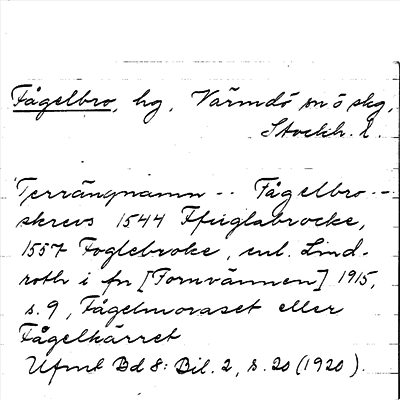 Fågelbro, hg, Värmdö sn ö skg,
Stockh. l.
Terrängnamn -- Fågelbro --
skrevs 1544 Ffuglabrocke,
1557 Foglebroke, enl. Lind-
roth i fn [Fornvännen] 1915,
s. 9, Fågelmoraset eller
Fågelkärret
Ufmt Bd 8: Bil. 2, s. 20 (1920).